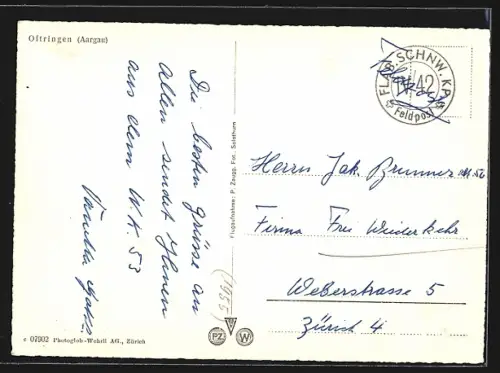 Oftringen (Aargau)
Die besten Grüsse an
Allen sendet Ihnen
aus dem W.K. 53
(1955)
Flugaufnahme: P. Zaugg, Fot., Solothurn
c 07902 Photoglob-Wehrli AG., Zürich
PZ W
FL.B.SCHNW.KP.
42
Feldpost
Herrn Jak. Brunner
Firma Frei Wiederkehr
Weberstrasse 5
Zürich 4